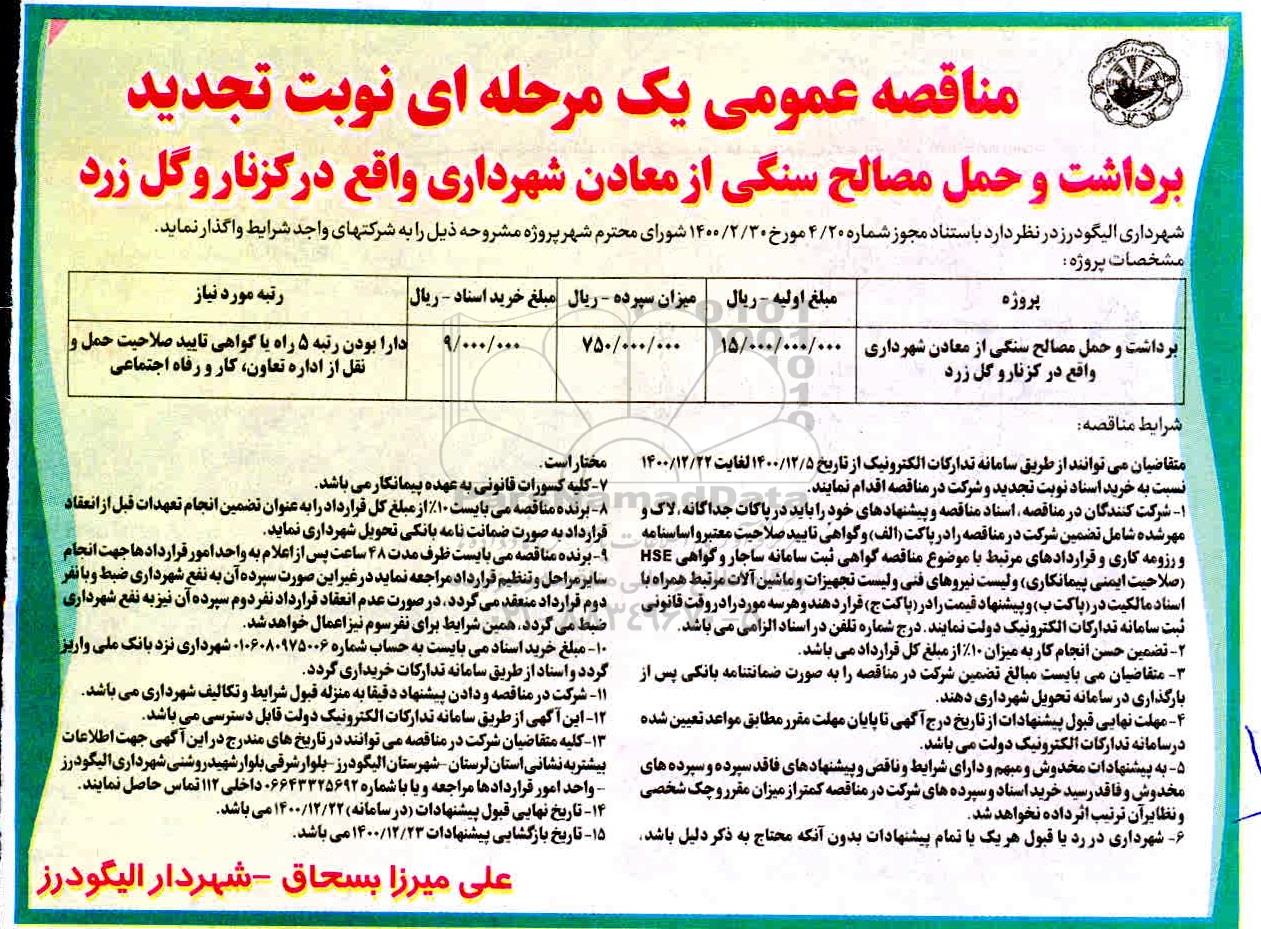 مناقصه عمومی یک مرحله ای نوبت تجدید
برداشت و حمل مصالح سنگی از معادن شهرداری واقع در کزنار و گل زرد
شهرداری الیگودرز در نظر دارد باستناد مجوز شماره ۴/۲۰ مورخ ۱۴۰۰/۲/۳۰ شورای محترم شهر پروژه مشروحه ذیل را به شرکتهای واجد شرایط واگذار نماید.
مشخصات پروژه:
پروژه مبلغ اولیه - ریال میزان سپرده - ریال مبلغ خرید اسناد - ریال رتبه مورد نیاز
برداشت و حمل مصالح سنگی از معادن شهرداری ۱۵/۰۰۰/۰۰۰/۰۰۰ ۷۵۰/۰۰۰/۰۰۰ ۹/۰۰۰/۰۰۰ دارا بودن رتبه ۵ راه یا گواهی تایید صلاحیت حمل و
واقع در کزنار و گل زرد نقل از اداره تعاون، کار و رفاه اجتماعی
شرایط مناقصه:
متقاضیان می توانند از طریق سامانه تدارکات الکترونیک از تاریخ ۱۴۰۰/۱۲/۵ لغایت ۱۴۰۰/۱۲/۲۲
نسبت به خرید اسناد نوبت تجدید و شرکت در مناقصه اقدام نمایند.
۱- شرکت کنندگان در مناقصه، اسناد مناقصه و پیشنهادهای خود را باید در پاکات جداگانه، لاک و
مهر شده شامل تضمین شرکت در مناقصه را در پاکت (الف) و گواهی تایید صلاحیت معتبر و اساسنامه
و رزومه کاری و قراردادهای مرتبط با موضوع مناقصه گواهی ثبت سامانه ساجار و گواهی HSE
(صلاحیت ایمنی پیمانکاری) و لیست نیروهای فنی و لیست تجهیزات و ماشین آلات مرتبط همراه با
اسناد مالکیت در (پاکت ب) و پیشنهاد قیمت را در (پاکت ج) قرار دهند و هر سه مورد را در وقت قانونی
ثبت سامانه تدارکات الکترونیک دولت نمایند. درج شماره تلفن در اسناد الزامی می باشد.
۲- تضمین حسن انجام کار به میزان ۱۰٪ از مبلغ کل قرارداد می باشد.
۳- متقاضیان می بایست مبالغ تضمین شرکت در مناقصه را به صورت ضمانتنامه بانکی پس از
بارگذاری در سامانه تحویل شهرداری دهند.
۴- مهلت نهایی قبول پیشنهادات از تاریخ درج آگهی تا پایان مهلت مقرر مطابق مواعد تعیین شده
در سامانه تدارکات الکترونیک دولت می باشد.
۵- به پیشنهادات مخدوش و مبهم و دارای شرایط و ناقص و پیشنهادهای فاقد سپرده و سپرده های
مخدوش و فاقد رسید خرید اسناد و سپرده های شرکت در مناقصه کمتر از میزان مقرر و چک شخصی
و نظایر آن ترتیب اثر داده نخواهد شد.
۶- شهرداری در رد یا قبول هر یک یا تمام پیشنهادات بدون آنکه محتاج به ذکر دلیل باشد،
مختار است.
۷- کلیه کسورات قانونی به عهده پیمانکار می باشد.
۸- برنده مناقصه می بایست ۱۰٪ از مبلغ کل قرارداد را به عنوان تضمین انجام تعهدات قبل از انعقاد
قرارداد به صورت ضمانت نامه بانکی تحویل شهرداری نماید.
۹- برنده مناقصه می بایست ظرف مدت ۴۸ ساعت پس از اعلام به واحد امور قراردادها جهت انجام
سایر مراحل و تنظیم قرارداد مراجعه نماید در غیر این صورت سپرده آن به نفع شهرداری ضبط و با نفر
دوم قرارداد منعقد می گردد، در صورت عدم انعقاد قرارداد نفر دوم سپرده آن نیز به نفع شهرداری
ضبط می گردد. همین شرایط برای نفر سوم نیز اعمال خواهد شد.
۱۰- مبلغ خرید اسناد می بایست به حساب شماره ۰۱۰۶۰۸۰۹۷۵۰۰۶ شهرداری نزد بانک ملی واریز
گردد و اسناد از طریق سامانه تدارکات خریداری گردد.
۱۱- شرکت در مناقصه و دادن پیشنهاد دقیقا به منزله قبول شرایط و تکالیف شهرداری می باشد.
۱۲- این آگهی از طریق سامانه تدارکات الکترونیک دولت قابل دسترسی می باشد.
۱۳- کلیه متقاضیان شرکت در مناقصه می توانند در تاریخ های مندرج در این آگهی جهت اطلاعات
بیشتر به نشانی استان لرستان - شهرستان الیگودرز - بلوار شرقی بلوار شهید روشنی شهرداری الیگودرز
- واحد امور قراردادها مراجعه و یا با شماره ۰۶۶۴۳۳۲۵۶۹۲ داخلی ۱۱۲ تماس حاصل نمایند.
۱۴- تاریخ نهایی قبول پیشنهادات (در سامانه) ۱۴۰۰/۱۲/۲۲ می باشد.
۱۵- تاریخ بازگشایی پیشنهادات ۱۴۰۰/۱۲/۲۳ می باشد.
علی میرزا بسحاق - شهردار الیگودرز